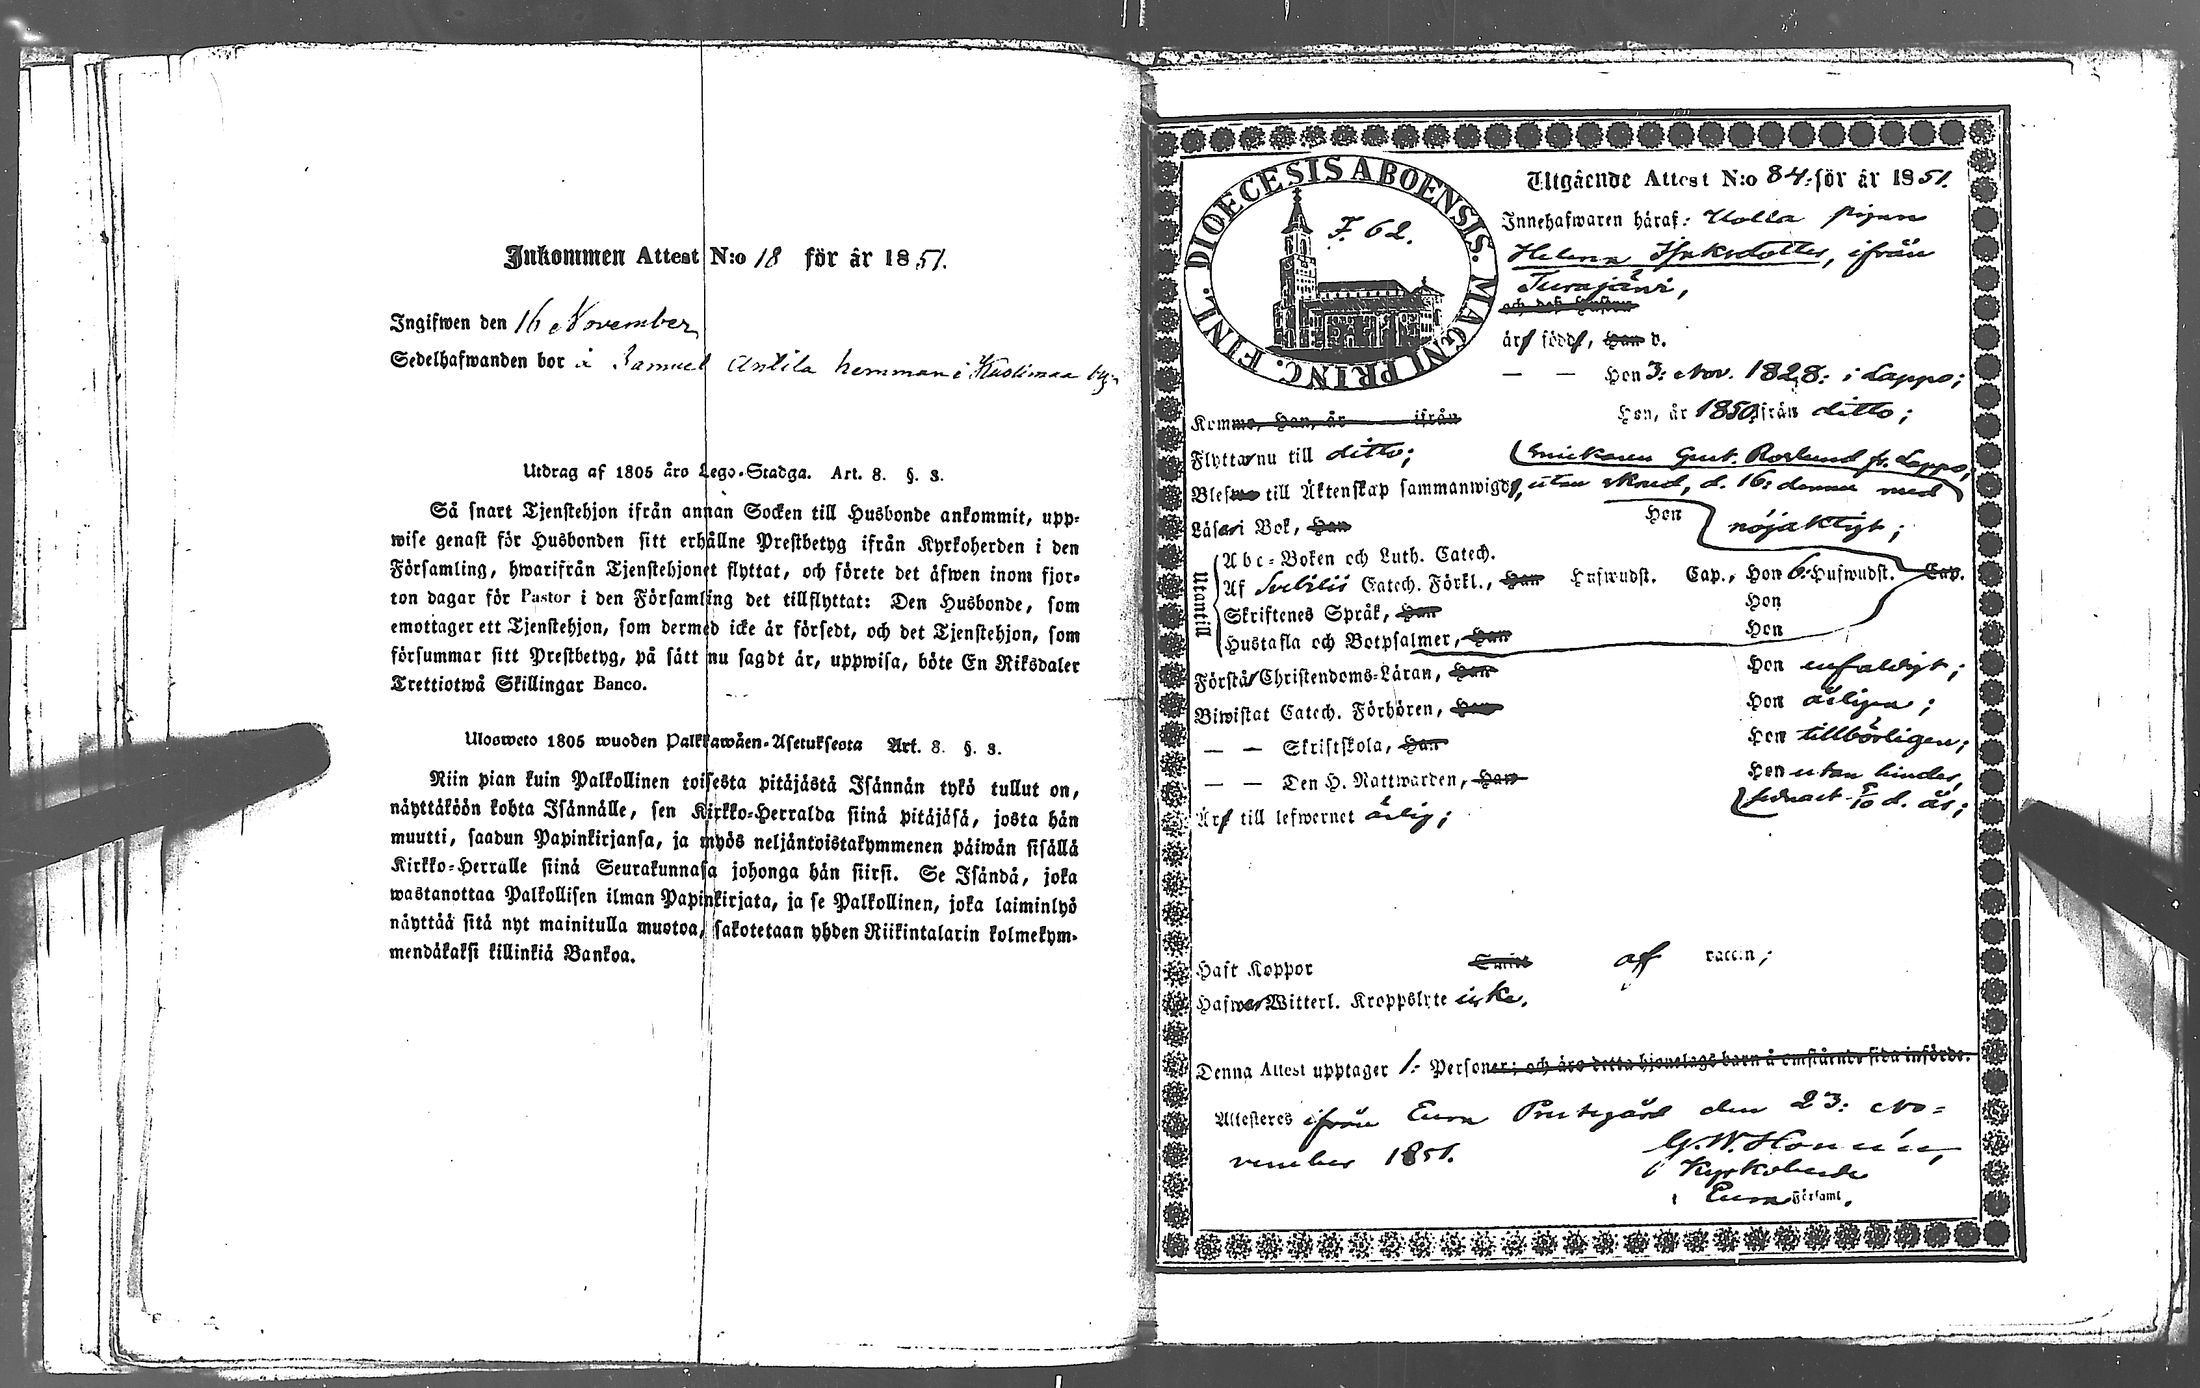 Inkommen Attest N:o 18 för år 1851.
Ingifwen den 16 November
Sedelhafwanden bor å Samuel Antila hemman i Kuolimaa by
Utdrag af 1805 års Lego-Stadga. Art. 8. §. 3.
Så snart Tjenstehjon ifrån annan Socken till Husbonde ankommit, upp-
wise genast för Husbonden sitt erhållne Prestbetyg ifrån Kyrkoherden i den
Församling, hwarifrån Tjenstehjonet flyttat, och förete det äfwen inom fjor-
ton dagar för Pastor i den Församling det tillflyttat: Den Husbonde, som
emottager ett Tjenstehjon, som dermed icke är försedt, och det Tjenstehjon, som
försummar sitt Prestbetyg, på sätt nu sagdt är, uppwisa, böte En Riksdaler
Trettiotwå Skillingar Banco.
Ulosweto 1805 wuoden Palkkawäen-Asetuksesta Art. 8. §. 3.
Niin pian kuin Palkollinen toisesta pitäjästä Isännän tykö tullut on,
näyttäköön kohta Isännälle, sen Kirkko-Herralda siinä pitäjäsä, josta hän
muutti, saadun Papinkirjansa, ja myös neljäntoistakymmenen päiwän sisällä
Kirkko-Herralle siinä Seurakunnasa johonga hän siirsi. Se Isändä, joka
wastanottaa Palkollisen ilman Papinkirjata, ja se Palkollinen, joka laiminlyö
näyttää sitä nyt mainitulla muotoa, sakotetaan yhden Riikintalarin kolmekym-
mendäkaksi killinkiä Bankoa.
DIOECESIS ABOENSIS. MAGNI PRINC. FINL.
F. 62.
Utgående Attest N:o 84. för år 1851.
Innehafwaren häraf: Ulla pigan
Helena Isaksdotter, ifrån
Turajärvi,
och dess hustru
är född, Han d.
— — Hon 3: Nov. 1828: i Lappo;
Komme, Han, år ifrån Hon, år 1850 ifrån ditto;
Flyttar nu till ditto;
Gust. Roslund fr. Lappo,
Blefwo till Äktenskap sammanwigde, utan skrud, d. 16: denne med
Läser i Bok, Han Hon nöjaktigt;
Utantill
Abc-Boken och Luth. Catech.
Af Svebilii Catech. Förkl., Han Hufwudst. Cap., Hon 6: Hufwudst. Cap.
Skriftenes Språk, Han Hon
Hustafla och Botpsalmer, Han Hon
Förstår Christendoms-Läran, Han Hon enfaldigt;
Biwistat Catech. Förhören, Han Hon årligen;
— — Skriftskola, Han Hon tillbörligen;
— — Den H. Nattwarden, Han Hon utan hinder,
senast 5/10 d. år;
Är till lefwernet ärlig;
Haft Koppor Smitt af vaccin;
Hafwer Witterl. Kroppslyte icke.
Denna Attest upptager 1. Personer; och äro detta hjonelags barn å omstående sida införde.
Attesteres ifrån Eura Prestgård den 23: No-
vember 1851.
Kyrkoherde
i Eura Församl.